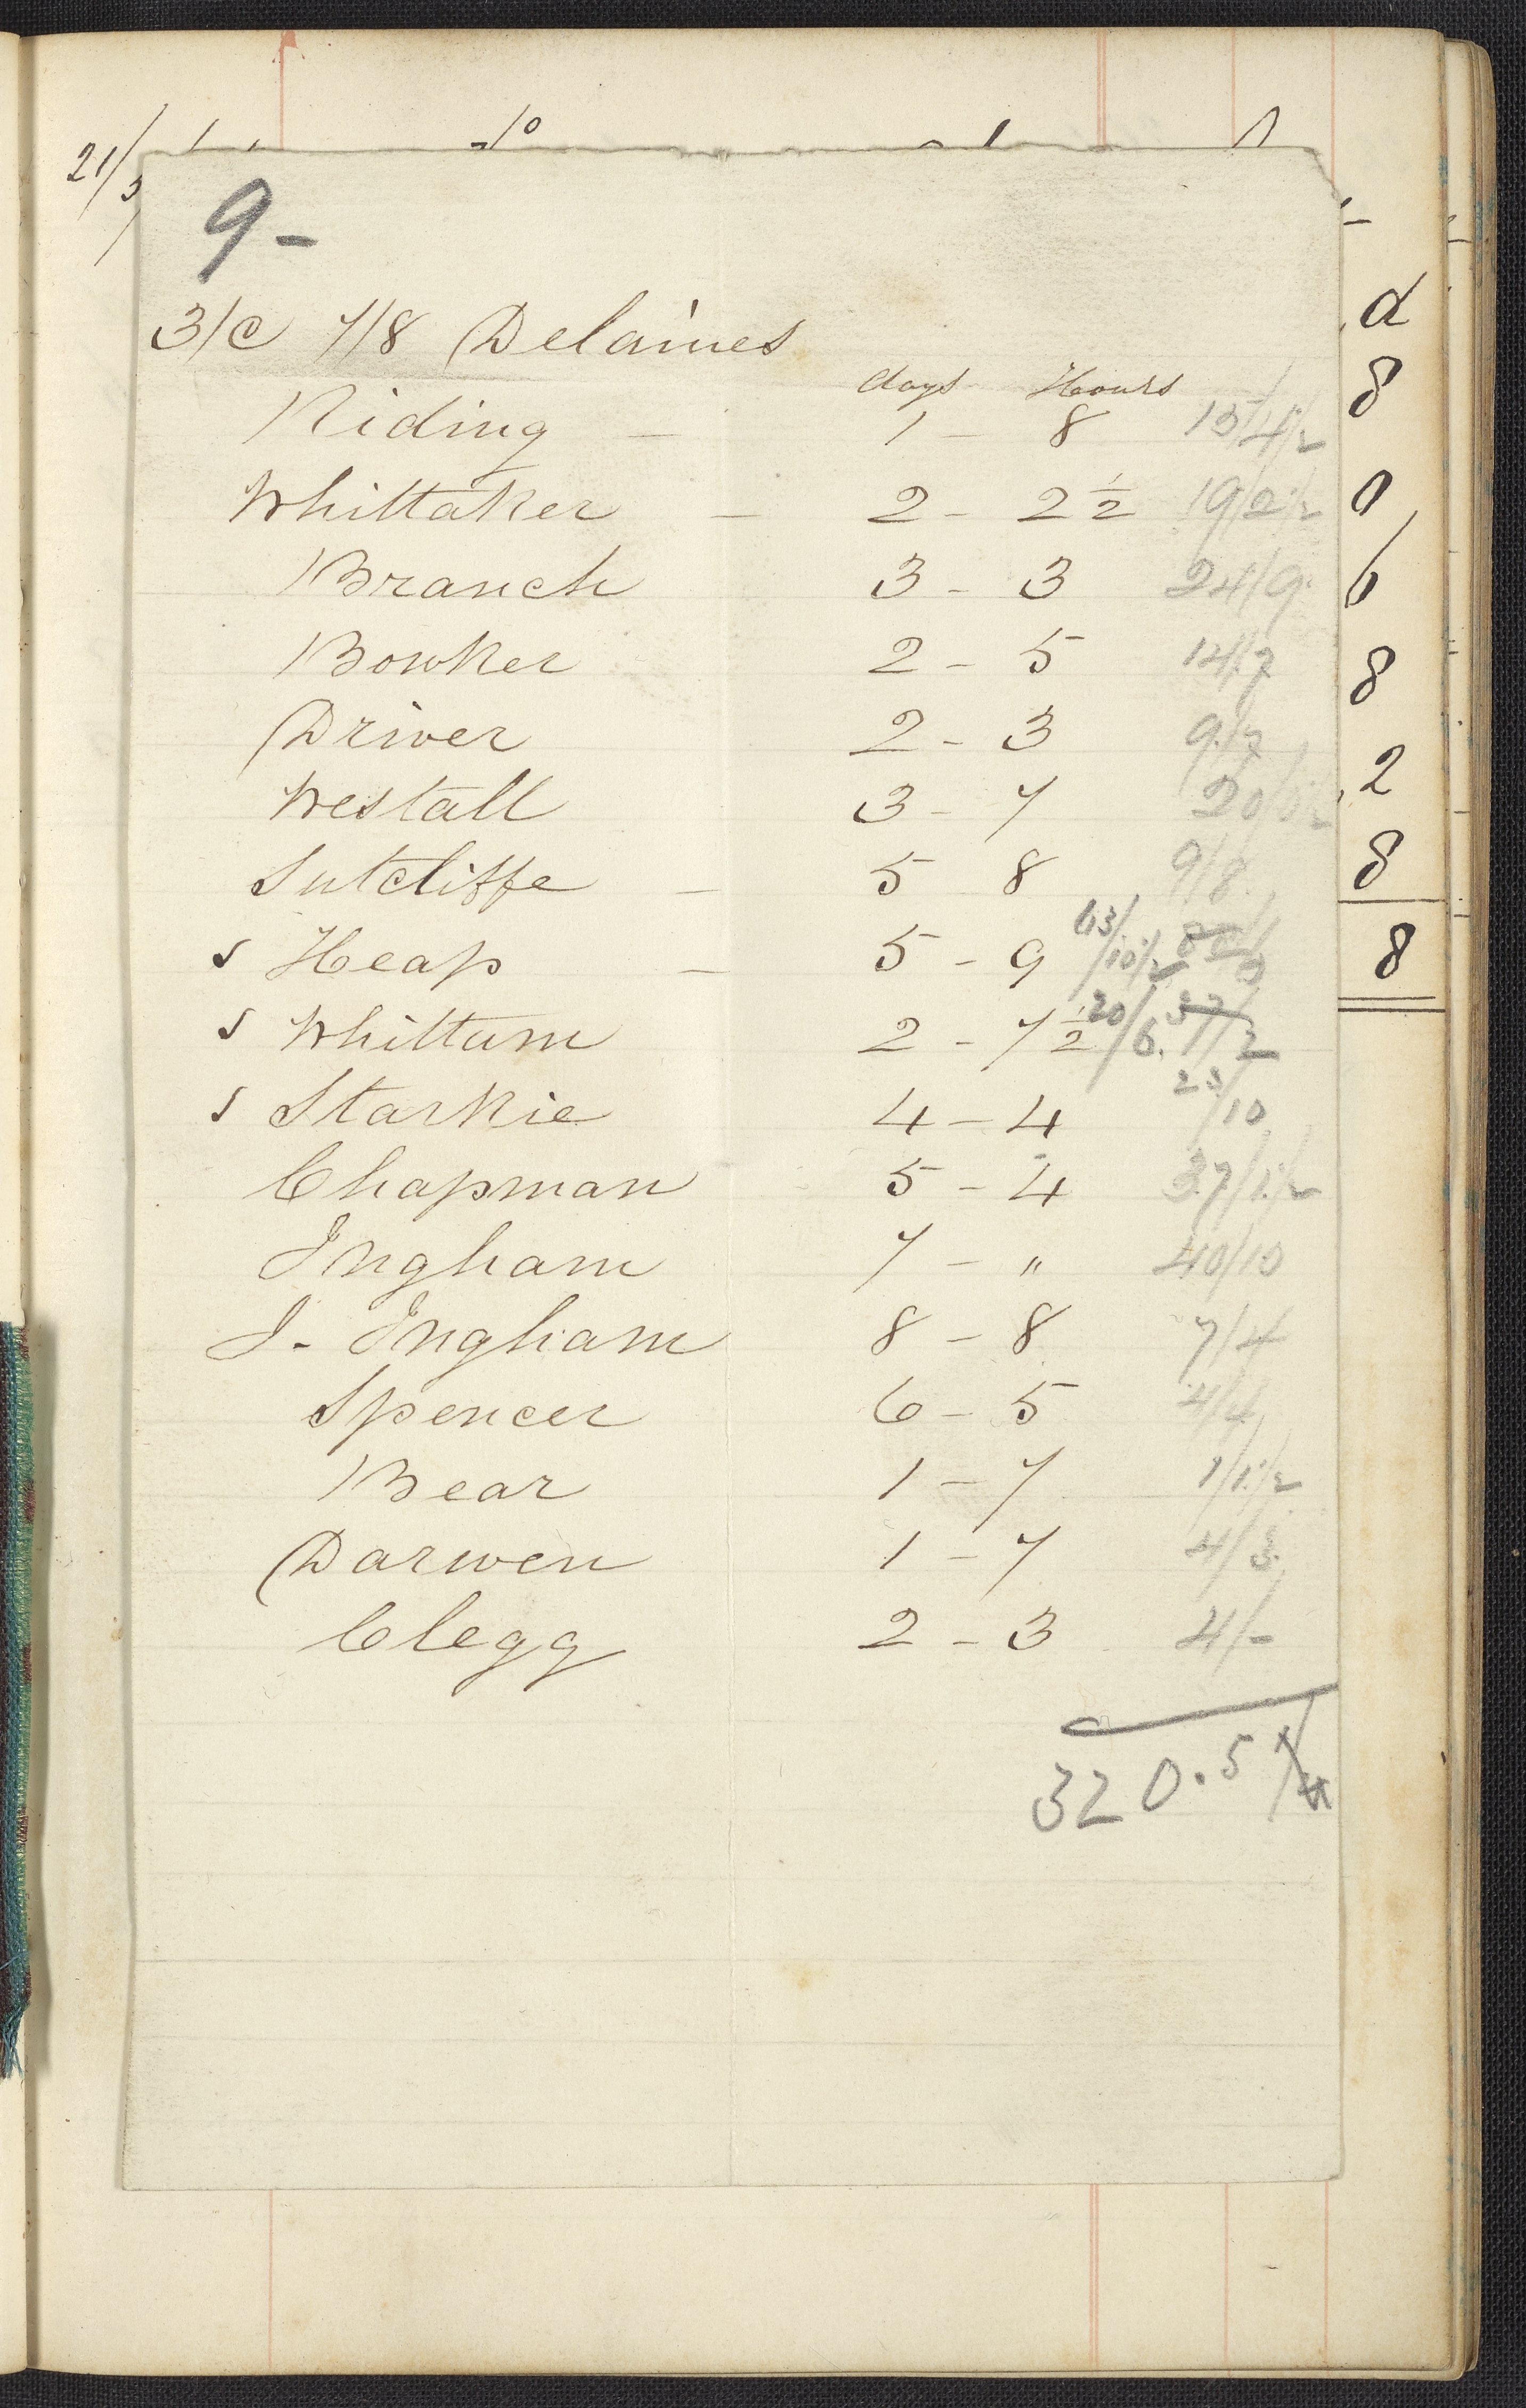 21/5
9-
3/c 7/8 Delaines
days Hours
Riding - 1 - 8 15/4½
Whittaker - 2 - 2½ 19/2½
Branch 3 - 3 24/9
Bowker 2 - 5 14/7
Driver 2 - 3 9/7
Westall 3 - 7 20/
Sutcliffe - 5 8 9/8
s Heap - 5 - 9 63/10½
s Whittam 2 - 7½ 20/6 37/2
s Starkie 4 - 4 23/10
Chapman 5 - 4 37/1½
Ingham 7 - " 40/10
J - Ingham 8 - 8 7/4
Spencer 6 - 5 4/4
Bear 1 - 7 1/1½
Darwen 1 - 7 4/3
Clegg 2 - 3 4/-
320.5
d
8
0
6
8
2
8
8